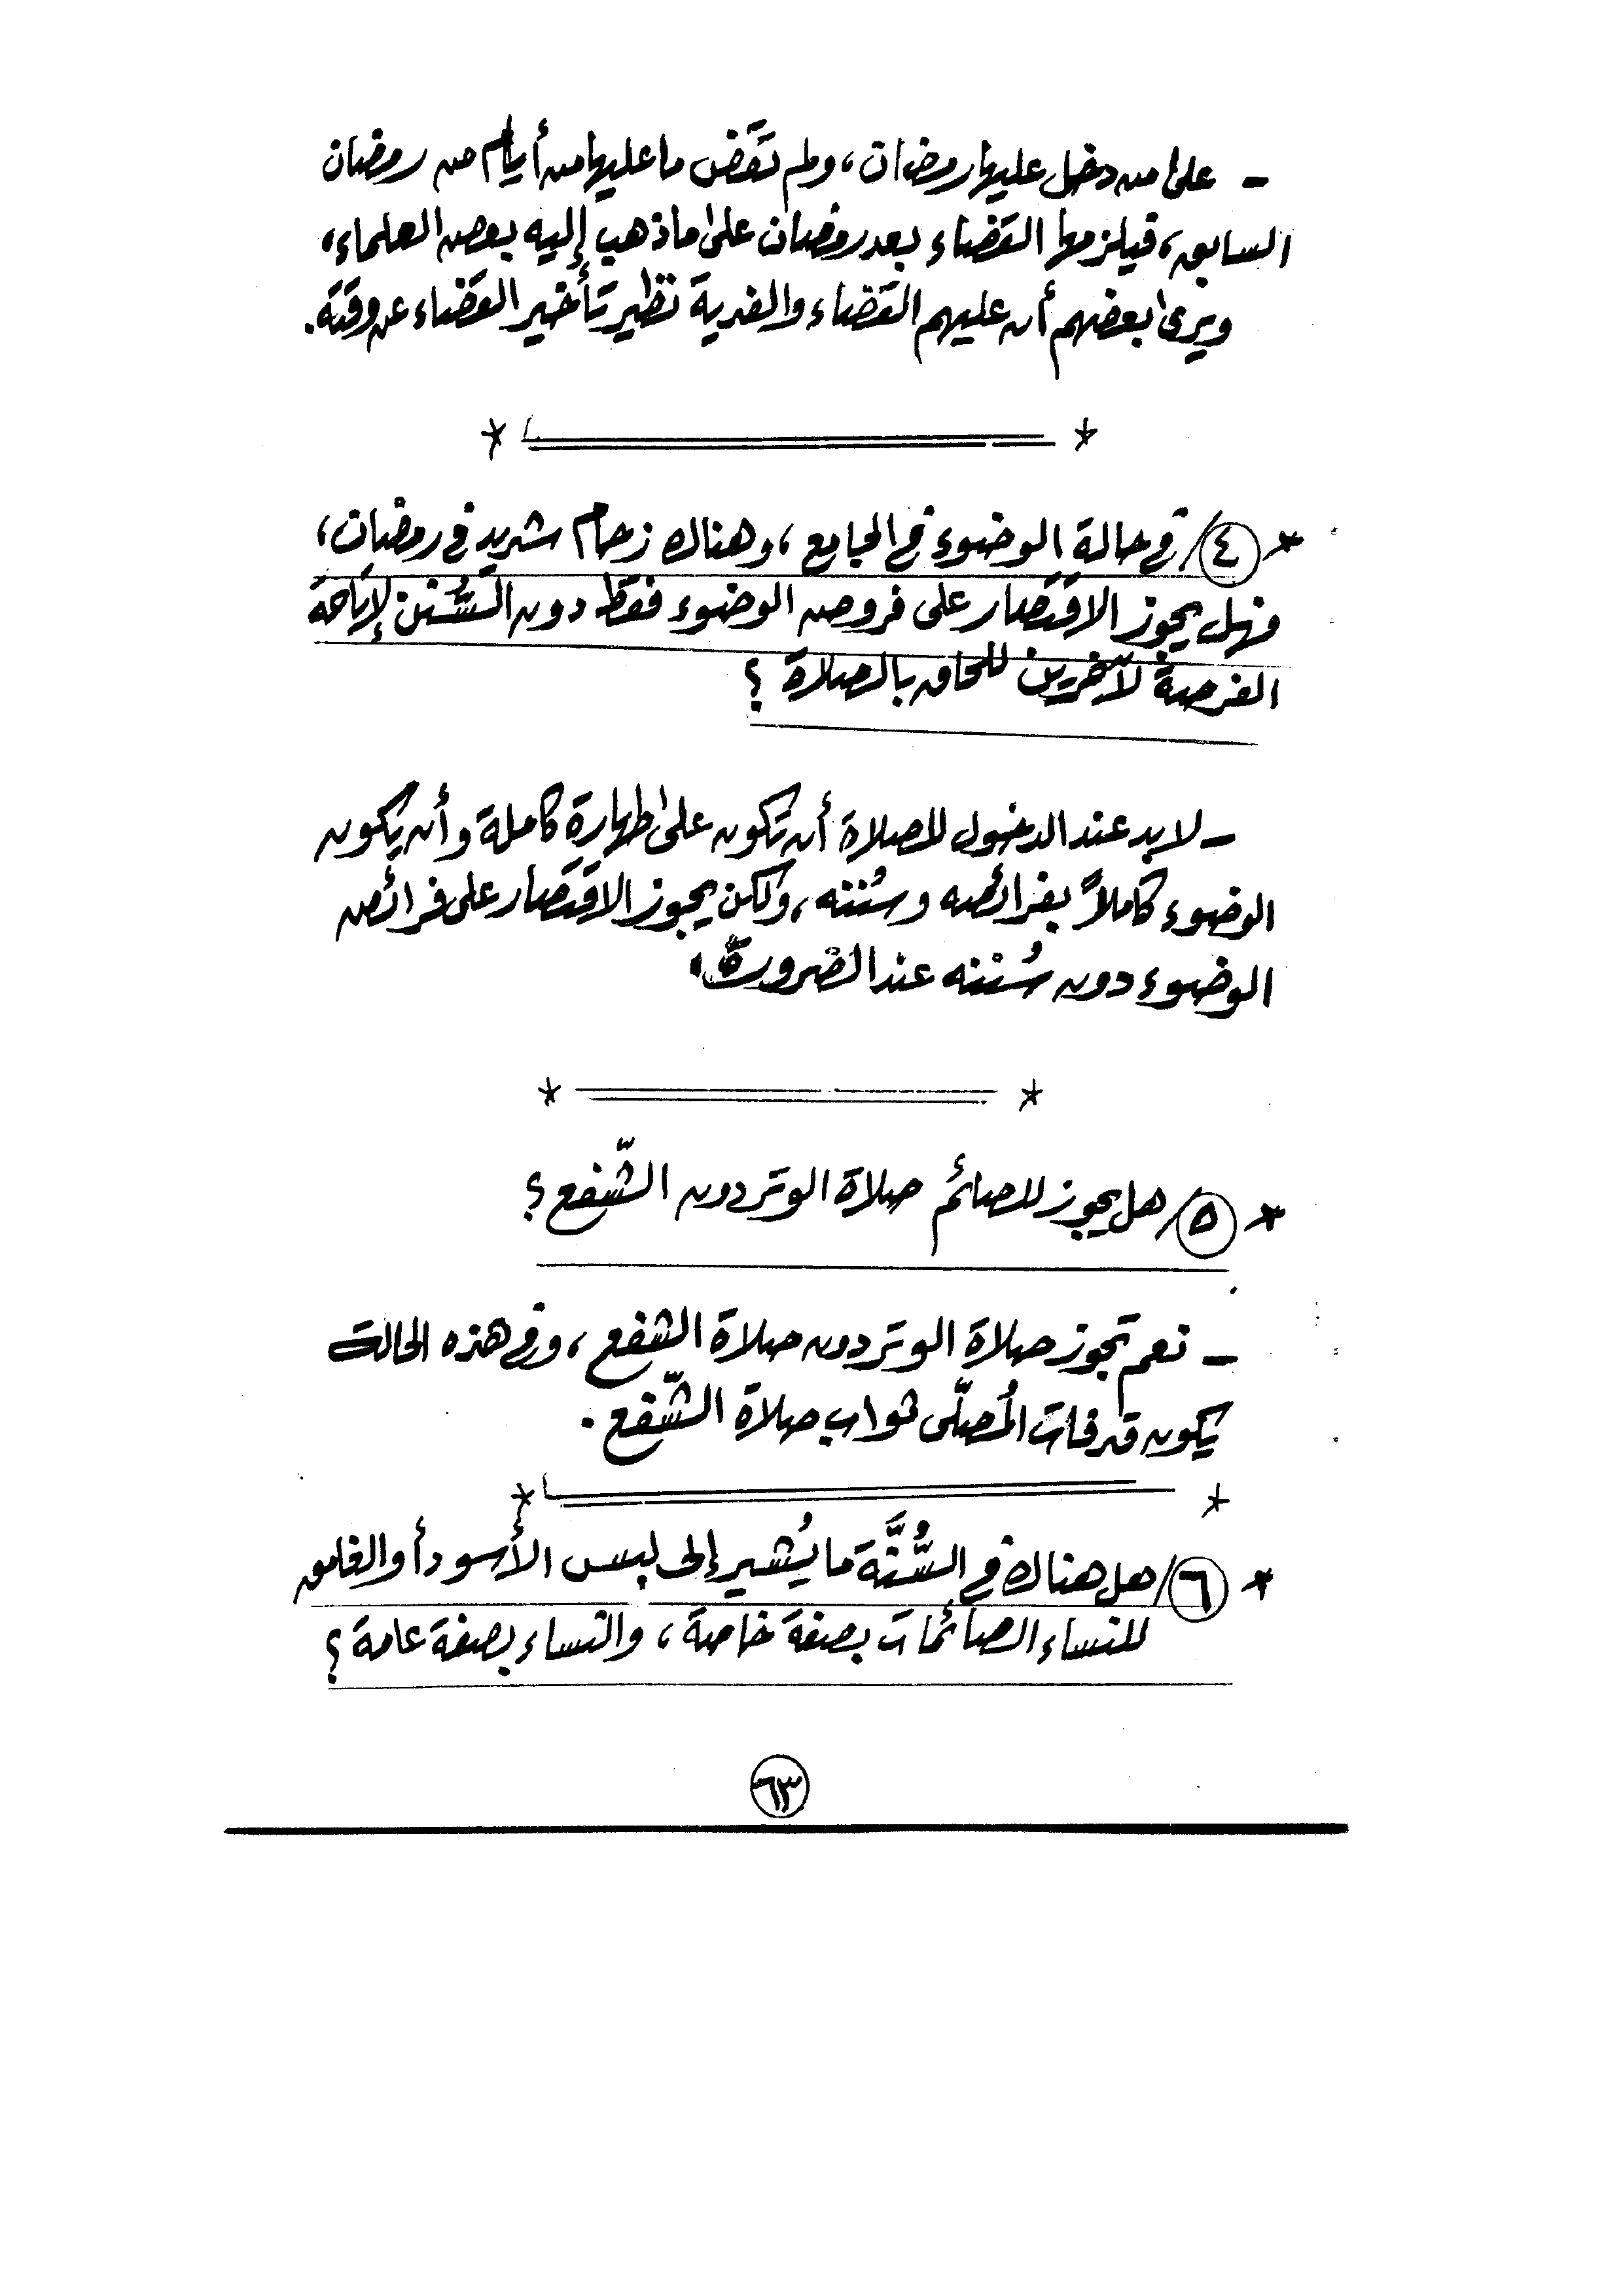 - على من دخل عليها رمضان، ولم تقض ما عليها من أيام من رمضان
السابق، فيلزمها القضاء بعد رمضان على ما ذهب إليه بعض العلماء،
ويرى بعضهم أن عليهم القضاء والفدية نظير تأخير القضاء عن وقته.
* ٤/ في حالة الوضوء في الجامع، وهناك زحام شديد في رمضان،
فهل يجوز الاقتصار على فروض الوضوء فقط دون السُّنن لإتاحة
الفرصة لآخرين للحاق بالصلاة؟
- لابد عند الدخول للصلاة أن تكون على طهارة كاملة وأن يكون
الوضوء كاملاً بفرائضه وسُننه، ولكن يجوز الاقتصار على فرائض
الوضوء دون سُننه عند الضرورة.
* ٥/ هل يجوز للصائم صلاة الوتر دون الشّفع؟
- نعم تجوز صلاة الوتر دون صلاة الشفع، وفي هذه الحالة
يكون قد فات المُصلّى ثواب صلاة الشّفع.
* ٦/ هل هناك في السُّنَّة ما يُشير إلى لبس الأسود أو الغامق
للنساء الصائمات بصفة خاصة، والنساء بصفة عامة؟
٦٣